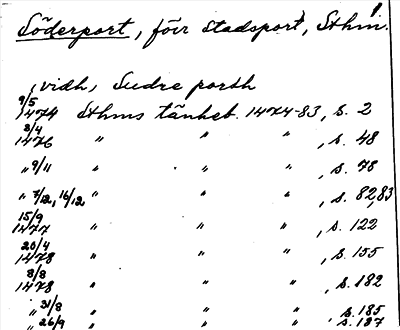 Söderport, förr stadsport, Sthm.
, vidh, Sudre porth
9/5 1474 Sthms tänkeb. 1474-83, s. 2
3/4 1476 " " " , s. 48
" 9/11 " " " , s. 78
" 7/12, 16/12 " " " , s. 82,83
15/9 1477 " " " , s. 122
20/4 1478 " " " , s. 155
8/8 1478 " " " , s. 182
" 31/8 " " " , s. 185
" 26/9 " " " , s. 187